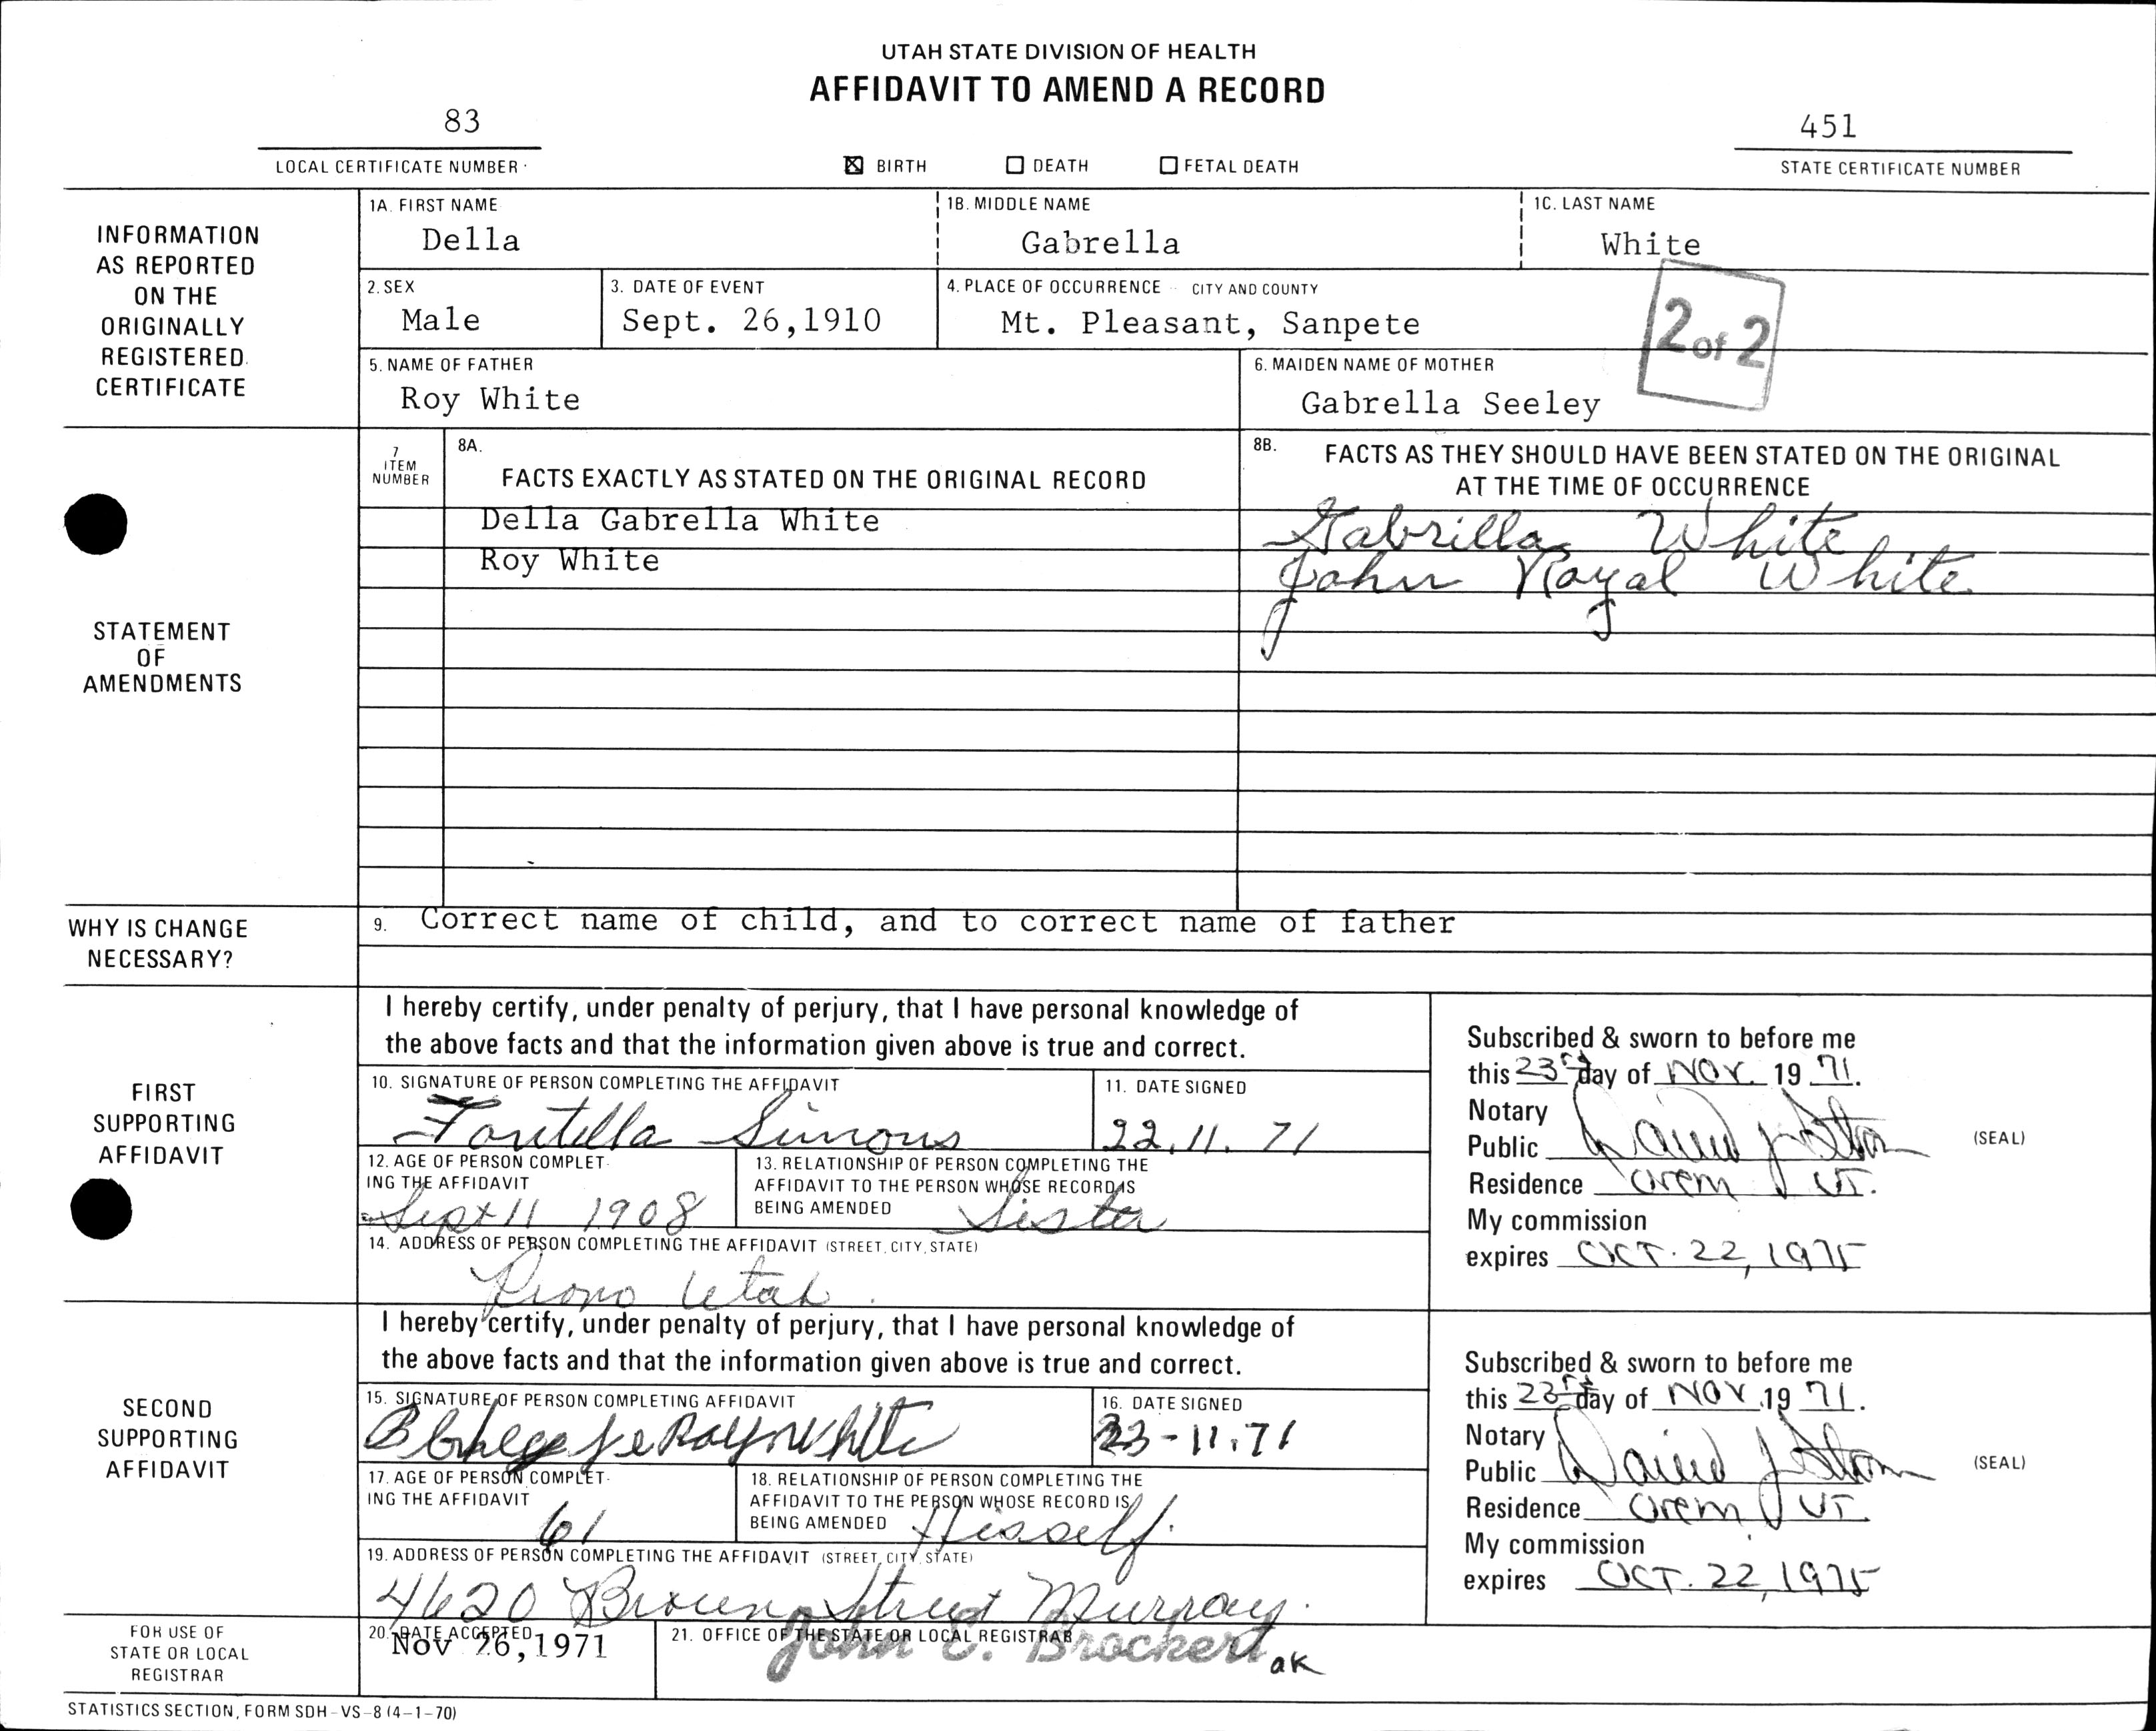 UTAH STATE DIVISION OF HEALTH
AFFIDAVIT TO AMEND A RECORD
83
451
LOCAL CERTIFICATE NUMBER
☒ BIRTH ☐ DEATH ☐ FETAL DEATH
STATE CERTIFICATE NUMBER
INFORMATION
AS REPORTED
ON THE
ORIGINALLY
REGISTERED
CERTIFICATE
1A. FIRST NAME
Della
1B. MIDDLE NAME
Gabrella
1C. LAST NAME
White
2. SEX
Male
3. DATE OF EVENT
Sept. 26,1910
4. PLACE OF OCCURRENCE CITY AND COUNTY
Mt. Pleasant, Sanpete
2 of 2
5. NAME OF FATHER
Roy White
6. MAIDEN NAME OF MOTHER
Gabrella Seeley
STATEMENT
OF
AMENDMENTS
7
ITEM
NUMBER
8A.
FACTS EXACTLY AS STATED ON THE ORIGINAL RECORD
8B. FACTS AS THEY SHOULD HAVE BEEN STATED ON THE ORIGINAL
AT THE TIME OF OCCURRENCE
Della Gabrella White
Gabrilla White
Roy White
John Royal White
WHY IS CHANGE
NECESSARY?
9. Correct name of child, and to correct name of father
FIRST
SUPPORTING
AFFIDAVIT
I hereby certify, under penalty of perjury, that I have personal knowledge of
the above facts and that the information given above is true and correct.
10. SIGNATURE OF PERSON COMPLETING THE AFFIDAVIT
Simons
11. DATE SIGNED
22.11.71
12. AGE OF PERSON COMPLET-
ING THE AFFIDAVIT
Sept 11 1908
13. RELATIONSHIP OF PERSON COMPLETING THE
AFFIDAVIT TO THE PERSON WHOSE RECORD IS
BEING AMENDED
Sister
14. ADDRESS OF PERSON COMPLETING THE AFFIDAVIT (STREET, CITY, STATE)
Provo Utah
Subscribed & sworn to before me
this 23rd day of NOV. 19 71.
Notary
Public
(SEAL)
Residence Orem UT.
My commission
expires OCT. 22, 1975
SECOND
SUPPORTING
AFFIDAVIT
I hereby certify, under penalty of perjury, that I have personal knowledge of
the above facts and that the information given above is true and correct.
15. SIGNATURE OF PERSON COMPLETING AFFIDAVIT
White
16. DATE SIGNED
23-11.71
17. AGE OF PERSON COMPLET-
ING THE AFFIDAVIT
61
18. RELATIONSHIP OF PERSON COMPLETING THE
AFFIDAVIT TO THE PERSON WHOSE RECORD IS
BEING AMENDED
Hisself.
19. ADDRESS OF PERSON COMPLETING THE AFFIDAVIT (STREET, CITY, STATE)
4620 Street Murray.
Subscribed & sworn to before me
this 23rd day of NOV. 19 71.
Notary
Public
(SEAL)
Residence Orem UT
My commission
expires OCT. 22, 1975
FOR USE OF
STATE OR LOCAL
REGISTRAR
20. DATE ACCEPTED
Nov 26,1971
21. OFFICE OF THE STATE OR LOCAL REGISTRAR
John E. Brockert
ak
STATISTICS SECTION, FORM SDH-VS-8 (4-1-70)